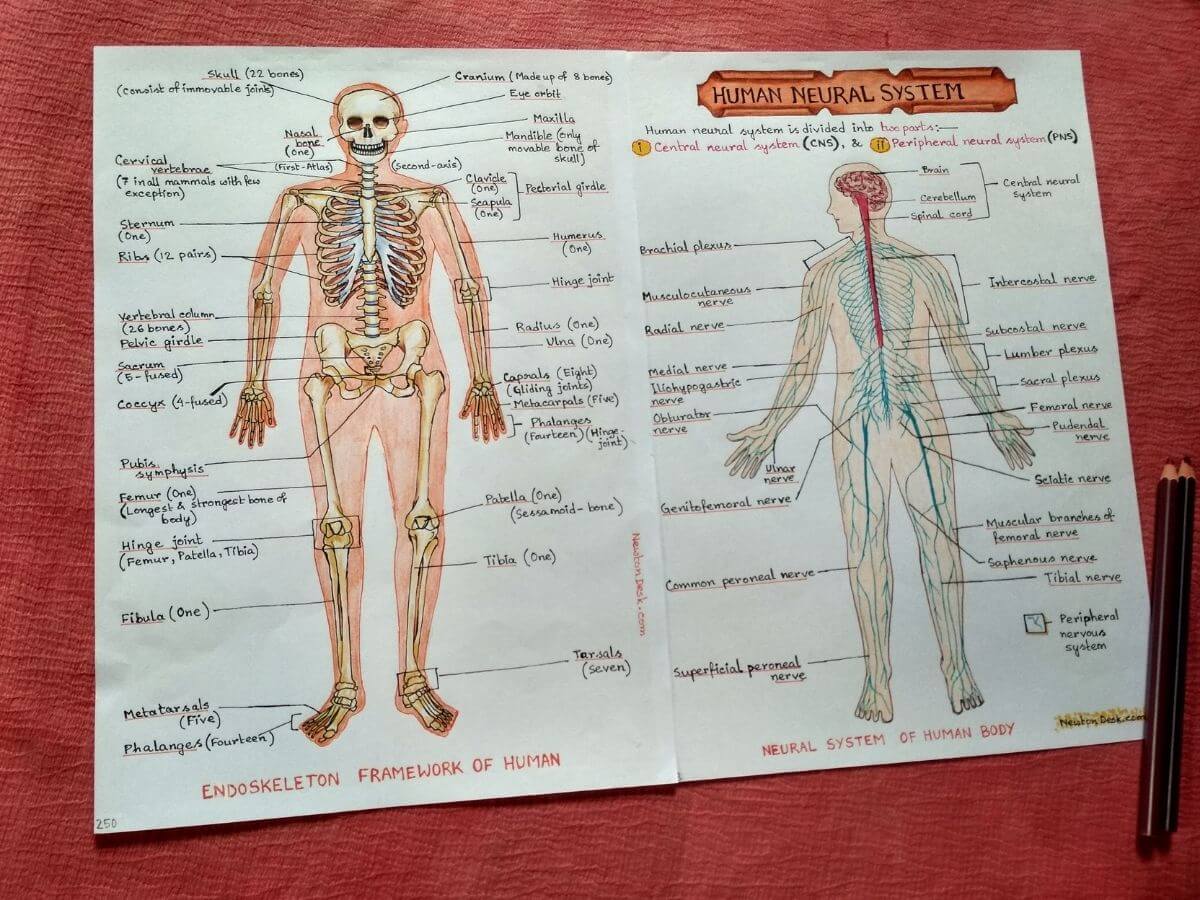 Skull (22 bones)
(Consist of immovable joint)
Nasal
bone
(One)
Cervical
vertebrae
(7 in all mammals with few
exception)
(First-Atlas)
(Second-axis)
Sternum
(One)
Ribs (12 pairs)
Vertebral column
(26 bones)
Pelvic girdle
Sacrum
(5-fused)
Coccyx (4-fused)
Pubis
symphysis
Femur (One)
(Longest & strongest bone of
body)
Hinge joint
(Femur, Patella, Tibia)
Fibula (One)
Metatarsals
(Five)
Phalanges (Fourteen)
Cranium (Made up of 8 bones)
Eye orbit
Maxilla
Mandible (only
movable bone of
skull)
Clavicle
(One)
Scapula
(One)
Pectorial girdle
Humerus
(One)
Hinge joint
Radius (One)
Ulna (One)
Caprals (Eight)
(Gliding joints)
Metacarpals (Five)
Phalanges
(Fourteen) (Hinge-
joint)
Patella (One)
(Sessamoid-bone)
Tibia (One)
Tarsals
(Seven)
NewtonDesk.com
ENDOSKELETON FRAMEWORK OF HUMAN
250
HUMAN NEURAL SYSTEM
Human neural system is divided into two parts:—
i Central neural system (CNS), & ii Peripheral neural system (PNS)
Brain
Cerebellum
Spinal cord
Central neural
system
Brachial plexus
Musculocutaneous
nerve
Radial nerve
Medial nerve
Iliohypogastric
nerve
Obturator
nerve
Ulnar
nerve
Genitofemoral nerve
Common peroneal nerve
Superficial peroneal
nerve
Intercostal nerve
Subcostal nerve
Lumber plexus
Sacral plexus
Femoral nerve
Pudendal
nerve
Sciatic nerve
Muscular branches of
femoral nerve
Saphenous nerve
Tibial nerve
Peripheral
nervous
system
NewtonDesk.com
NEURAL SYSTEM OF HUMAN BODY